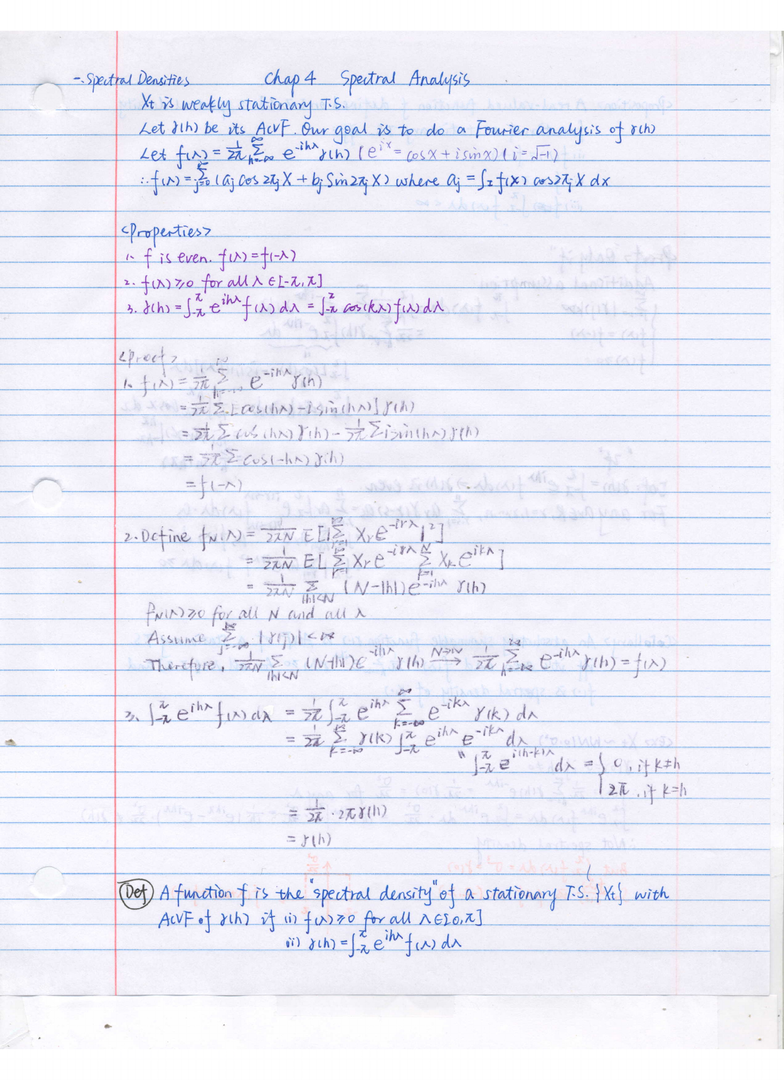 一. Spectral Densities Chap 4 Spectral Analysis
Xt is weakly stationary T.S.
Let γ(h) be its ACVF. Our goal is to do a Fourier analysis of γ(h)
Let f(λ) = 1/2π ∑_{h=-∞}^{∞} e^{-ihλ} γ(h) (e^{ix} = cosx + isinx) (i = √-1)
∴ f(λ) = ∑_{j=0}^{∞} (aj cos 2πj X + bj Sin 2πj X) where aj = ∫_I f(x) cos2πj X dx
<Properties>
1. f is even. f(λ) = f(-λ)
2. f(λ) ≥ 0 for all λ ∈ [-π, π]
3. γ(h) = ∫_{-π}^{π} e^{ihλ} f(λ) dλ = ∫_{-π}^{π} cos(kλ) f(λ) dλ
<Proof>
1. f(λ) = 1/2π ∑_{h=-∞}^{∞} e^{-ihλ} γ(h)
= 1/2π ∑ [cos(hλ) - isin(hλ)] γ(h)
= 1/2π ∑ cos(hλ) γ(h) - 1/2π ∑ isin(hλ) γ(h)
= 1/2π ∑ cos(-hλ) γ(h)
= f(-λ)
2. Define fN(λ) = 1/2πN E[|∑_{r=1}^{N} Xr e^{-irλ}|^2]
= 1/2πN E[∑_{r=1}^{N} Xr e^{-irλ} ∑_{k=1}^{N} Xk e^{ikλ}]
= 1/2πN ∑_{|h|<N} (N-|h|) e^{-ihλ} γ(h)
fN(λ) ≥ 0 for all N and all λ
Assume ∑_{j=-∞}^{∞} |γ(j)| < ∞
Therefore, 1/2πN ∑_{|h|<N} (N-|h|) e^{-ihλ} γ(h) →^{N→∞} 1/2π ∑_{h=-∞}^{∞} e^{-ihλ} γ(h) = f(λ)
3. ∫_{-π}^{π} e^{ihλ} f(λ) dλ = 1/2π ∫_{-π}^{π} e^{ihλ} ∑_{k=-∞}^{∞} e^{-ikλ} γ(k) dλ
= 1/2π ∑_{k=-∞}^{∞} γ(k) ∫_{-π}^{π} e^{ihλ} e^{-ikλ} dλ
" ∫_{-π}^{π} e^{i(h-k)λ} dλ = { 0, if k≠h
2π, if k=h
= 1/2π · 2πγ(h)
= γ(h)
(Def) A function f is the "spectral density" of a stationary T.S. {Xt} with
ACVF of γ(h) if (i) f(λ) ≥ 0 for all λ ∈ [0, π]
(ii) γ(h) = ∫_{-π}^{π} e^{ihλ} f(λ) dλ